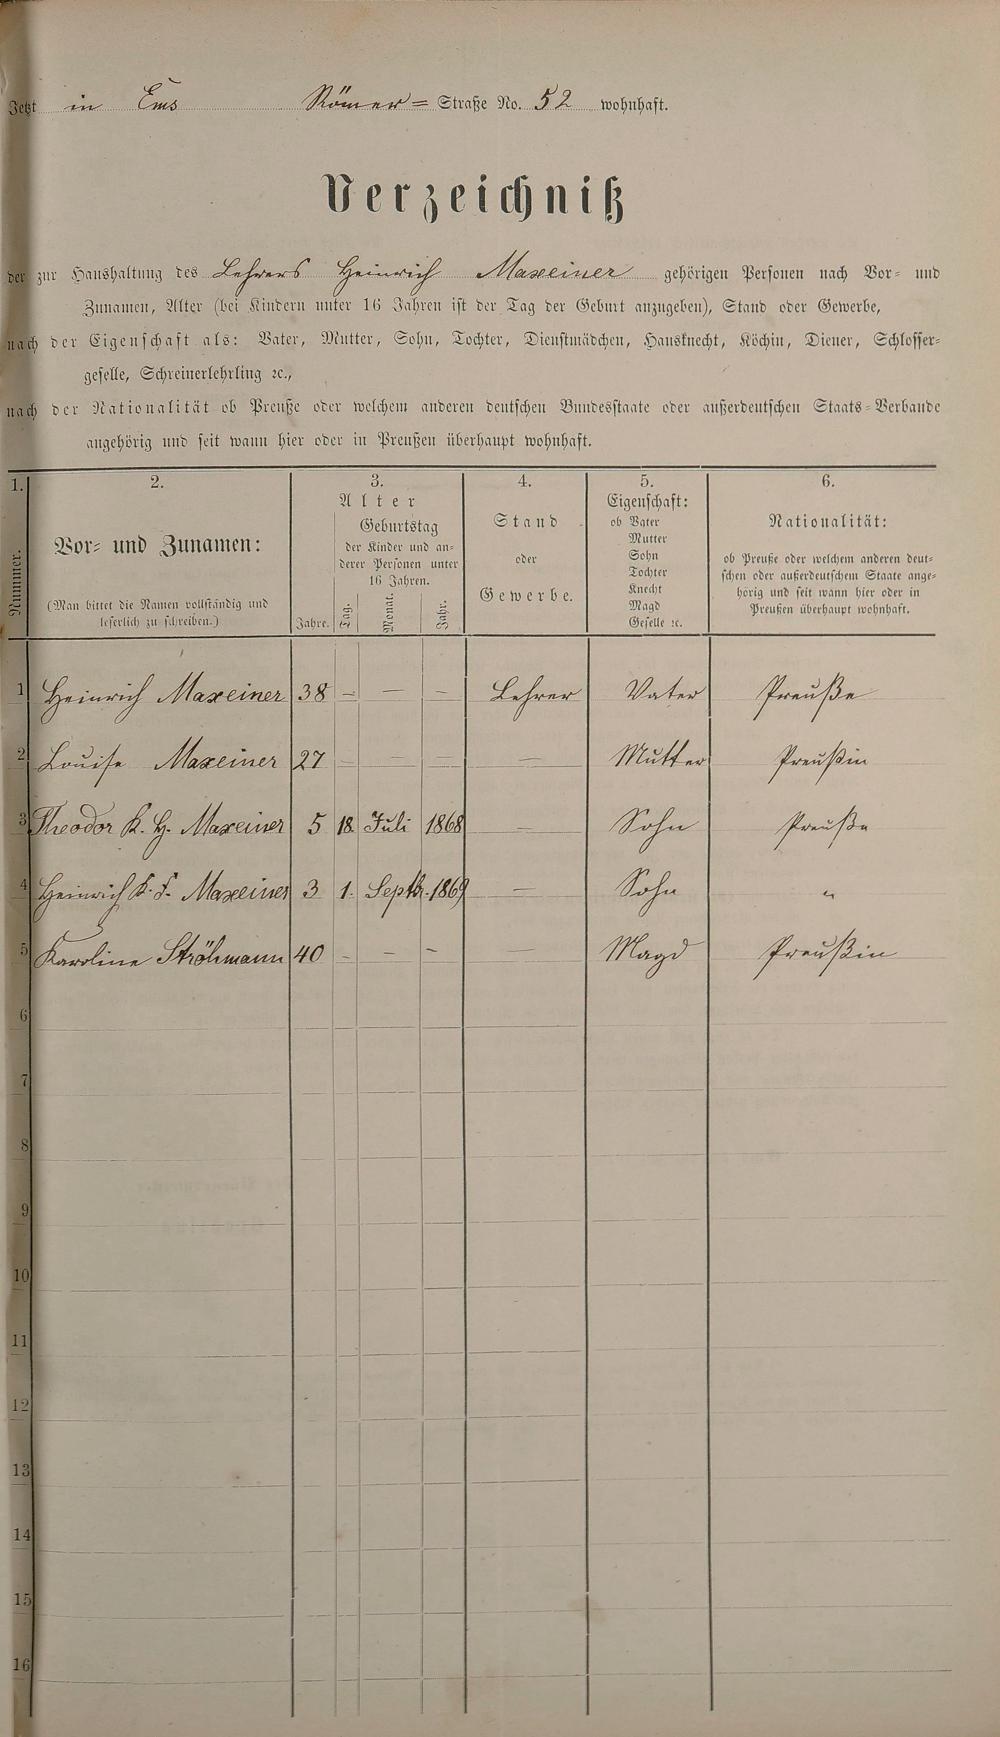 Jetzt in Ems Römer= Straße No. 52 wohnhaft.
Verzeichniß
der zur Haushaltung des Lehrers Heinrich Maxeiner gehörigen Personen nach Vor= und
Zunamen, Alter (bei Kindern unter 16 Jahren ist der Tag der Geburt anzugeben), Stand oder Gewerbe,
nach der Eigenschaft als: Vater, Mutter, Sohn, Tochter, Dienstmädchen, Hausknecht, Köchin, Diener, Schlosser=
geselle, Schreinerlehrling ꝛc.,
nach der Nationalität ob Preuße oder welchem anderen deutschen Bundesstaate oder außerdeutschen Staats=Verbande
angehörig und seit wann hier oder in Preußen überhaupt wohnhaft.
1. 2. 3. 4. 5. 6.
Nummer.
Vor= und Zunamen:
(Man bittet die Namen vollständig und
leserlich zu schreiben.)
Alter
Jahre.
Geburtstag
der Kinder und an=
derer Personen unter
16 Jahren.
Tag. Monat. Jahr.
Stand
oder
Gewerbe.
Eigenschaft:
ob Vater
Mutter
Sohn
Tochter
Knecht
Magd
Geselle ꝛc.
Nationalität:
ob Preuße oder welchem anderen deut=
schen oder außerdeutschem Staate ange=
hörig und seit wann hier oder in
Preußen überhaupt wohnhaft.
1 Heinrich Maxeiner 38 – — – Lehrer Vater Preuße
2 Louise Maxeiner 27 – – – — Mutter Preußin
3 Theodor K. H. Maxeiner 5 18. Juli 1868 — Sohn Preuße
4 Heinrich K. F. Maxeiner 3 1. Septbr. 1869 — Sohn "
5 Karoline Ströhmann 40 – – – — Magd Preußin
6
7
8
9
10
11
12
13
14
15
16